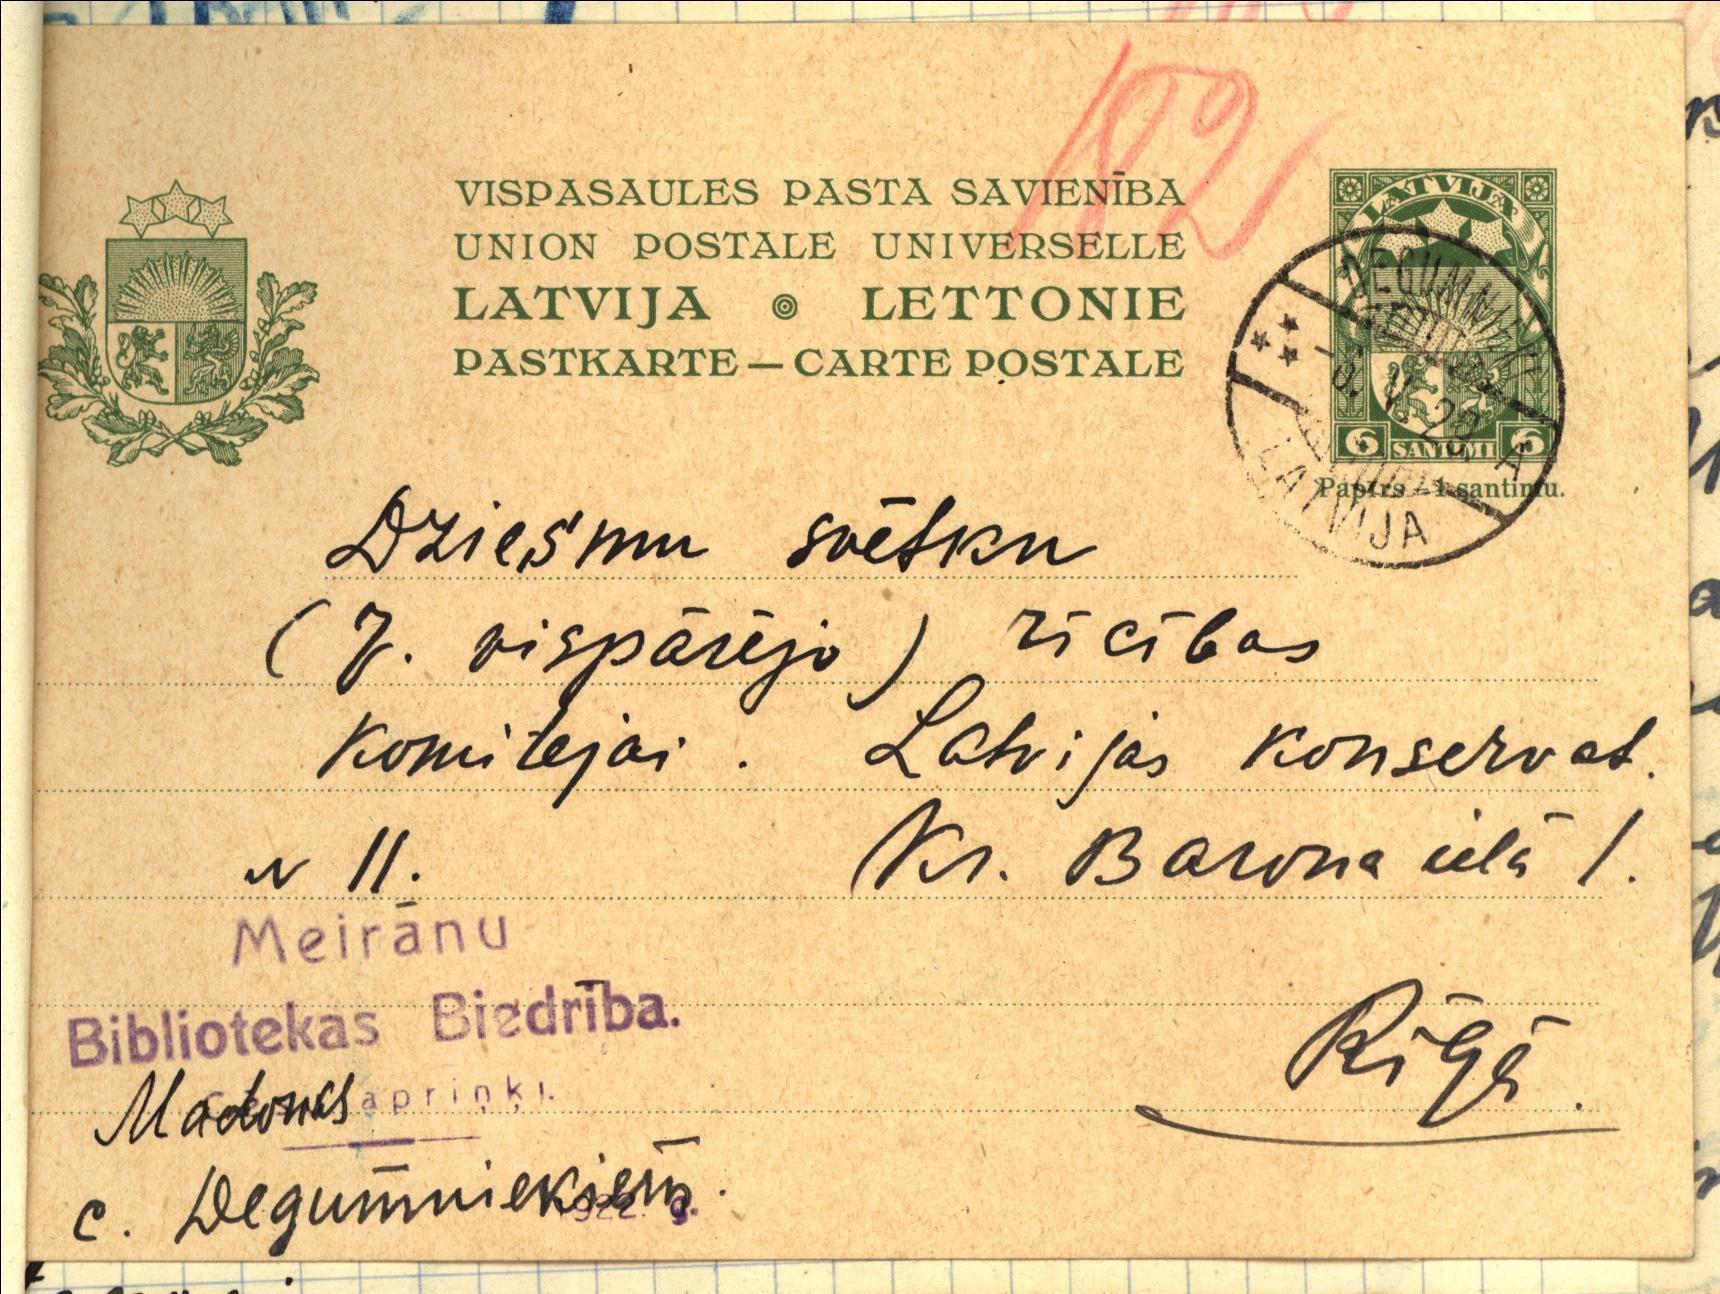 182
VISPASAULES PASTA SAVIENĪBA
UNION POSTALE UNIVERSELLE
LATVIJA LETTONIE
PASTKARTE — CARTE POSTALE
LATVIJA
6 SANTIMI 6
Papīrs – 1 santimu.
DEGUMNIEKI
LATVIJA
A
Dziesmu svētku
(7. vispārējo) rīcības
Komitejai. Latvijas Konservat.
N 11. Kr. Barona ielā 1.
Rīgā.
Meirānu
Bibliotekas Biedrība.
Madonas apriņķī.
c. Degumniekiem.